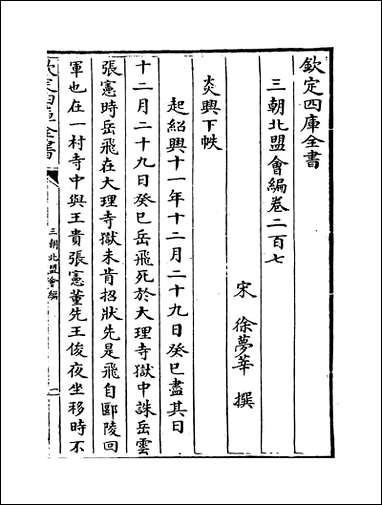 欽定四庫全書
三朝北盟會編卷二百七
宋 徐夢莘 撰
炎興下帙
起紹興十一年十二月二十九日癸巳盡其日
十二月二十九日癸巳岳飛死於大理寺獄中誅岳雲
張憲時岳飛在大理寺獄未肯招狀先是飛自郾陵回
軍也在一村寺中與王貴張憲董先王俊夜坐移時不
欽定四庫全書
三朝北盟會編
一